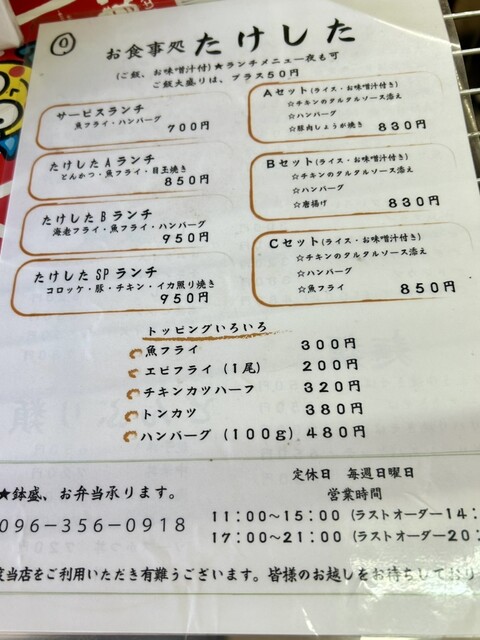 お食事処 たけした
(ご飯、お味噌汁付)★ランチメニュー夜も可
ご飯大盛りは、プラス50円
サービスランチ
魚フライ・ハンバーグ
700円
たけしたAランチ
とんかつ・魚フライ・目玉焼き
850円
たけしたBランチ
海老フライ・魚フライ・ハンバーグ
950円
たけしたSPランチ
コロッケ・豚・チキン・イカ照り焼き
950円
Aセット(ライス・お味噌汁付き)
☆チキンのタルタルソース添え
☆ハンバーグ
☆豚肉しょうが焼き 830円
Bセット(ライス・お味噌汁付き)
☆チキンのタルタルソース添え
☆ハンバーグ
☆唐揚げ 830円
Cセット(ライス・お味噌汁付き)
☆チキンのタルタルソース添え
☆ハンバーグ
☆魚フライ 850円
トッピングいろいろ
魚フライ 300円
エビフライ(1尾) 200円
チキンカツハーフ 320円
トンカツ 380円
ハンバーグ(100g) 480円
★鉢盛、お弁当承ります。
096-356-0918
定休日 毎週日曜日
営業時間
11:00~15:00(ラストオーダー14:
17:00~21:00(ラストオーダー20:
当店をご利用いただき有難うございます。皆様のお越しをお待ちしており